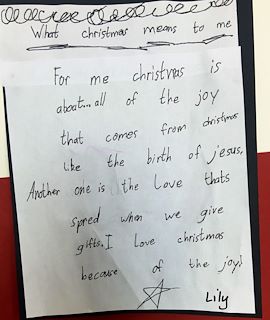 What christmas means to me
For me christmas is
about...all of the joy
that comes from christmas
like the birth of jesus,
Another one is the Love thats
spred when we give
gifts. I love christmas
because of the joy!
Lily